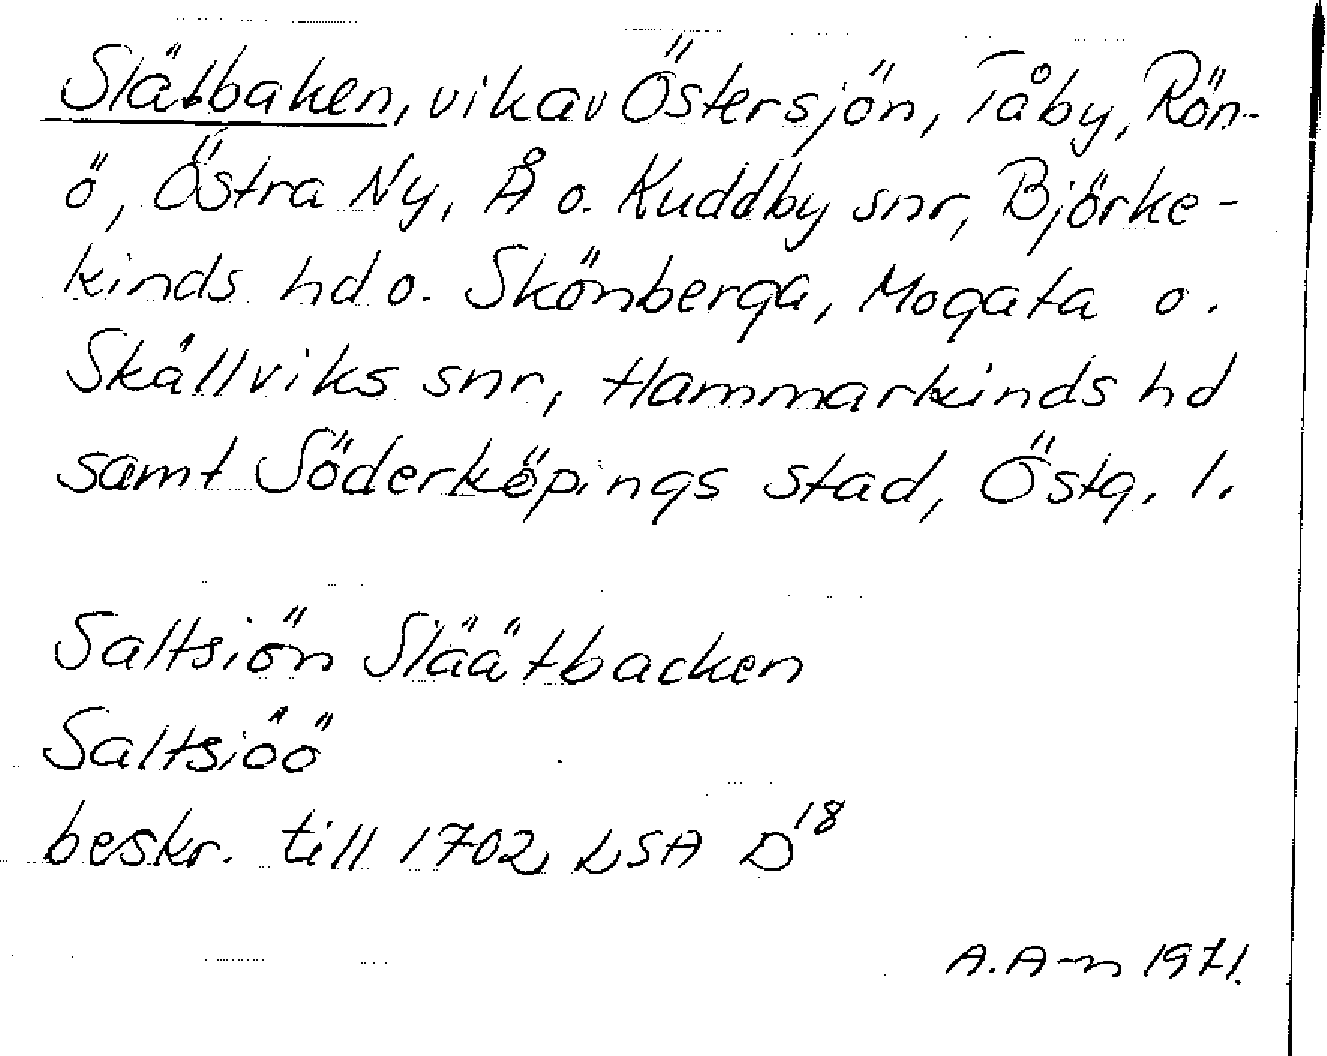 Slätbaken, vik av Östersjön, Tåby, Rön-
ö, Östra Ny, Å o. Kuddby snr, Björke-
kinds hd o. Skönberga, Mogata o.
Skällviks snr, Hammarkinds hd
samt Söderköpings stad, Östg. l.
Saltsiön Släätbacken
Saltsiöö
beskr. till 1702 LSA D18
A.A-n 1971.